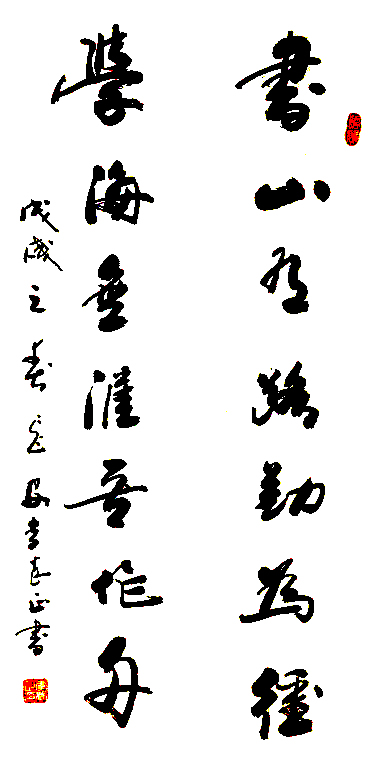 書山有路勤為徑
學海無涯苦作舟
戊戌之春李正書